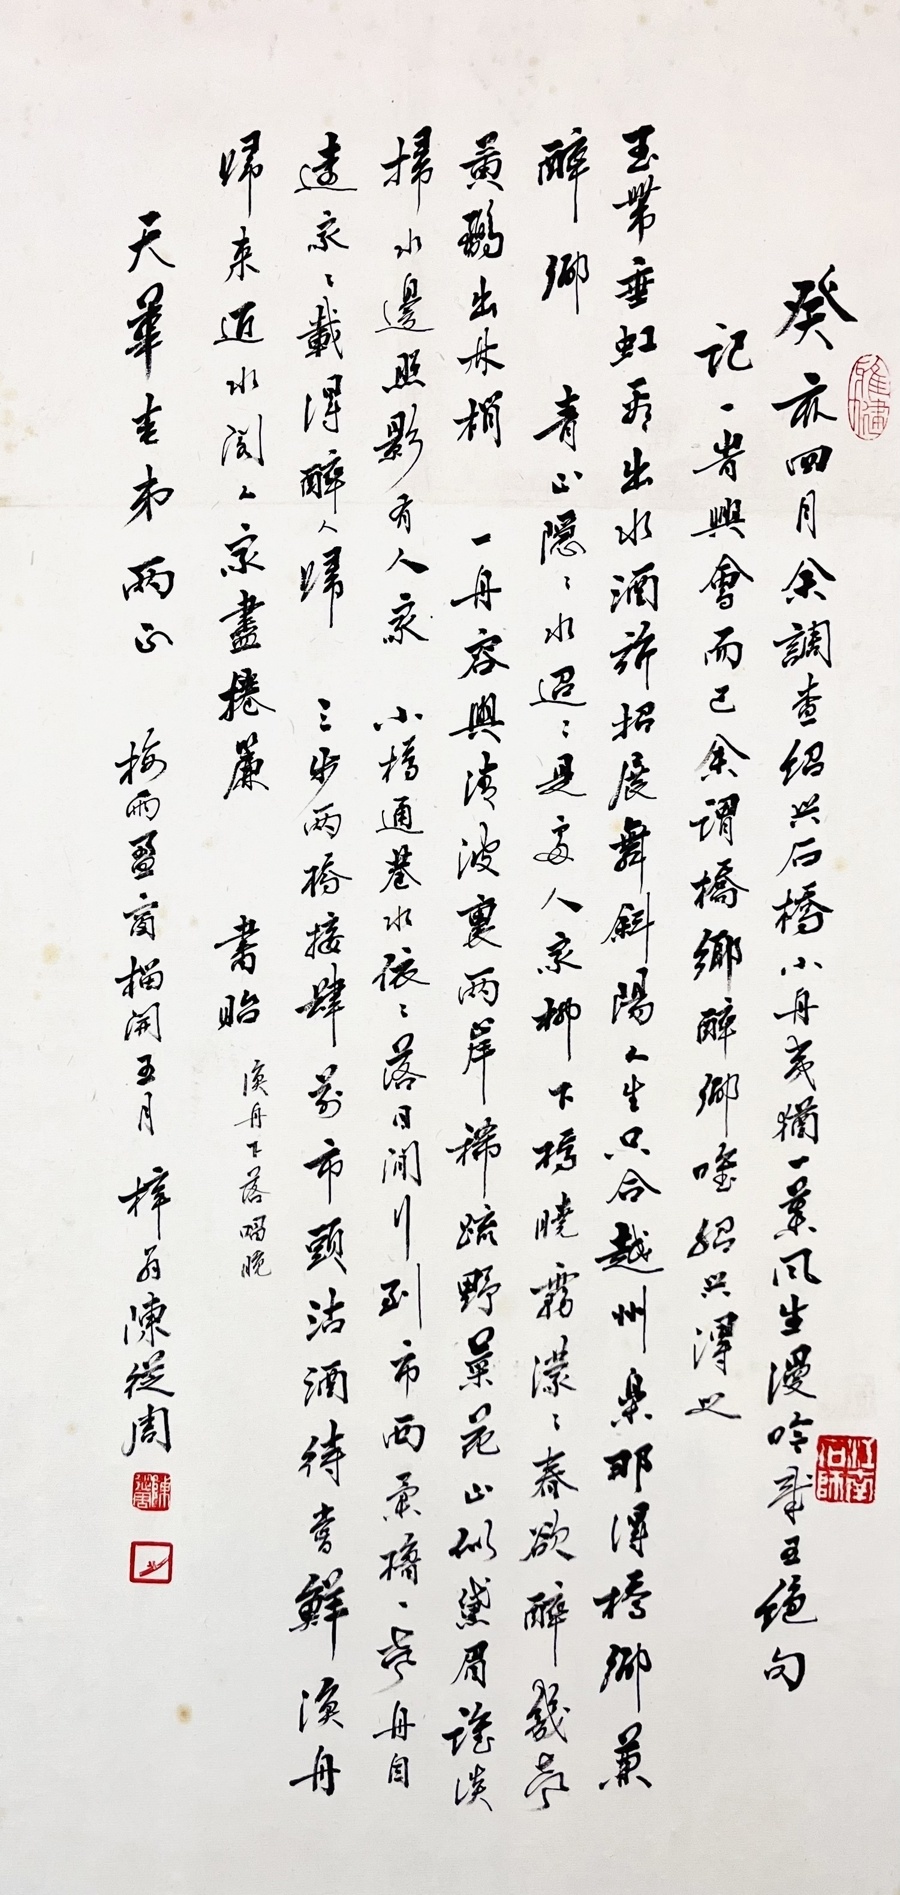 癸亥四月余調查紹興石橋小舟夷猶一葉風生漫吟成五絕句
記一時興會而已余謂橋鄉醉鄉唯紹興得之
玉帶垂虹看出水酒旂招展舞斜陽人生只合越州樂那得橋鄉兼
醉鄉 青山隱〻水迢〻是處人家柳下橋曉霧濛〻春欲醉幾聲
黃鸝出林梢 一舟容與清波裏兩岸稀疏野菜花山似黛眉誰淡
掃水邊照影有人家 小橋通巷水依〻落日閒行到市西柔櫓一聲舟自
遠家〻載得醉人歸 三步兩橋接肆前市頭沽酒待嘗鮮漁舟
歸來近水閣人家盡捲簾 書貽
漁舟下落唱晚
天華老弟兩正 梅雨盈窗榴開五月 梓翁陳從周
江南石師